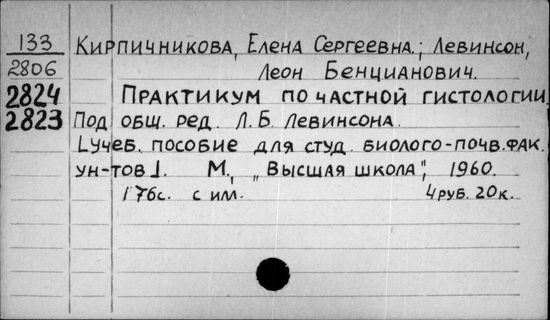 133 Кирпичникова, Елена Сергеевна.; Левинсон,
2806 Леон Бенцианович.
2824 Практикум по частной гистологии
2823 Под общ. ред. Л.Б. Левинсона.
[учеб. пособие для студ. биолого-почв. фак.
ун-тов]. М., „Высшая школа", 1960.
176с. с ил. 4 руб. 20 к.